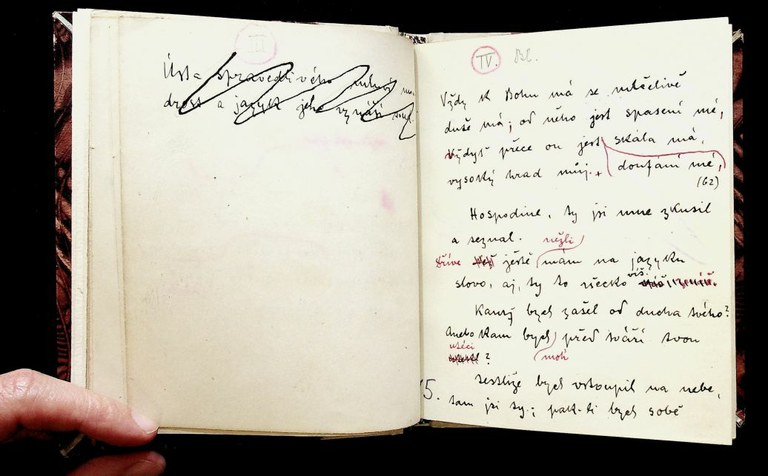 III
Ústa spravedlivého mluví mou
drost a jazyk jeho vynáší soud
IV. Bl.
Vždy k Bohu má se mlčelivě
duše má; od něho jest spasení mé,
Vždyť přece on jest skála má,
vysoký hrad můj. + doufání mé,
(62)
Hospodine, ty jsi mne zkusil
a seznal. nežli
dříve ještě mám na jazyku
slovo, aj, ty to všecko víš.
Kamž bych zašel od ducha tvého?
Anebo kam bych před tváří tvou
utéci ? moh
Jestliže bych vstoupil na nebe,
5. tam jsi ty; pak-li bych sobě